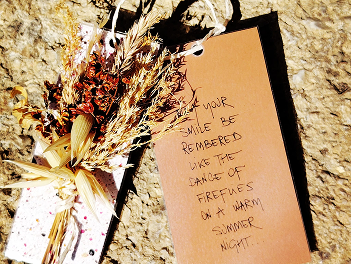 YOUR
SMILE BE
REMBERED
LIKE THE
DANCE OF
FIREFLIES
ON A WARM
SUMMER
NIGHT...